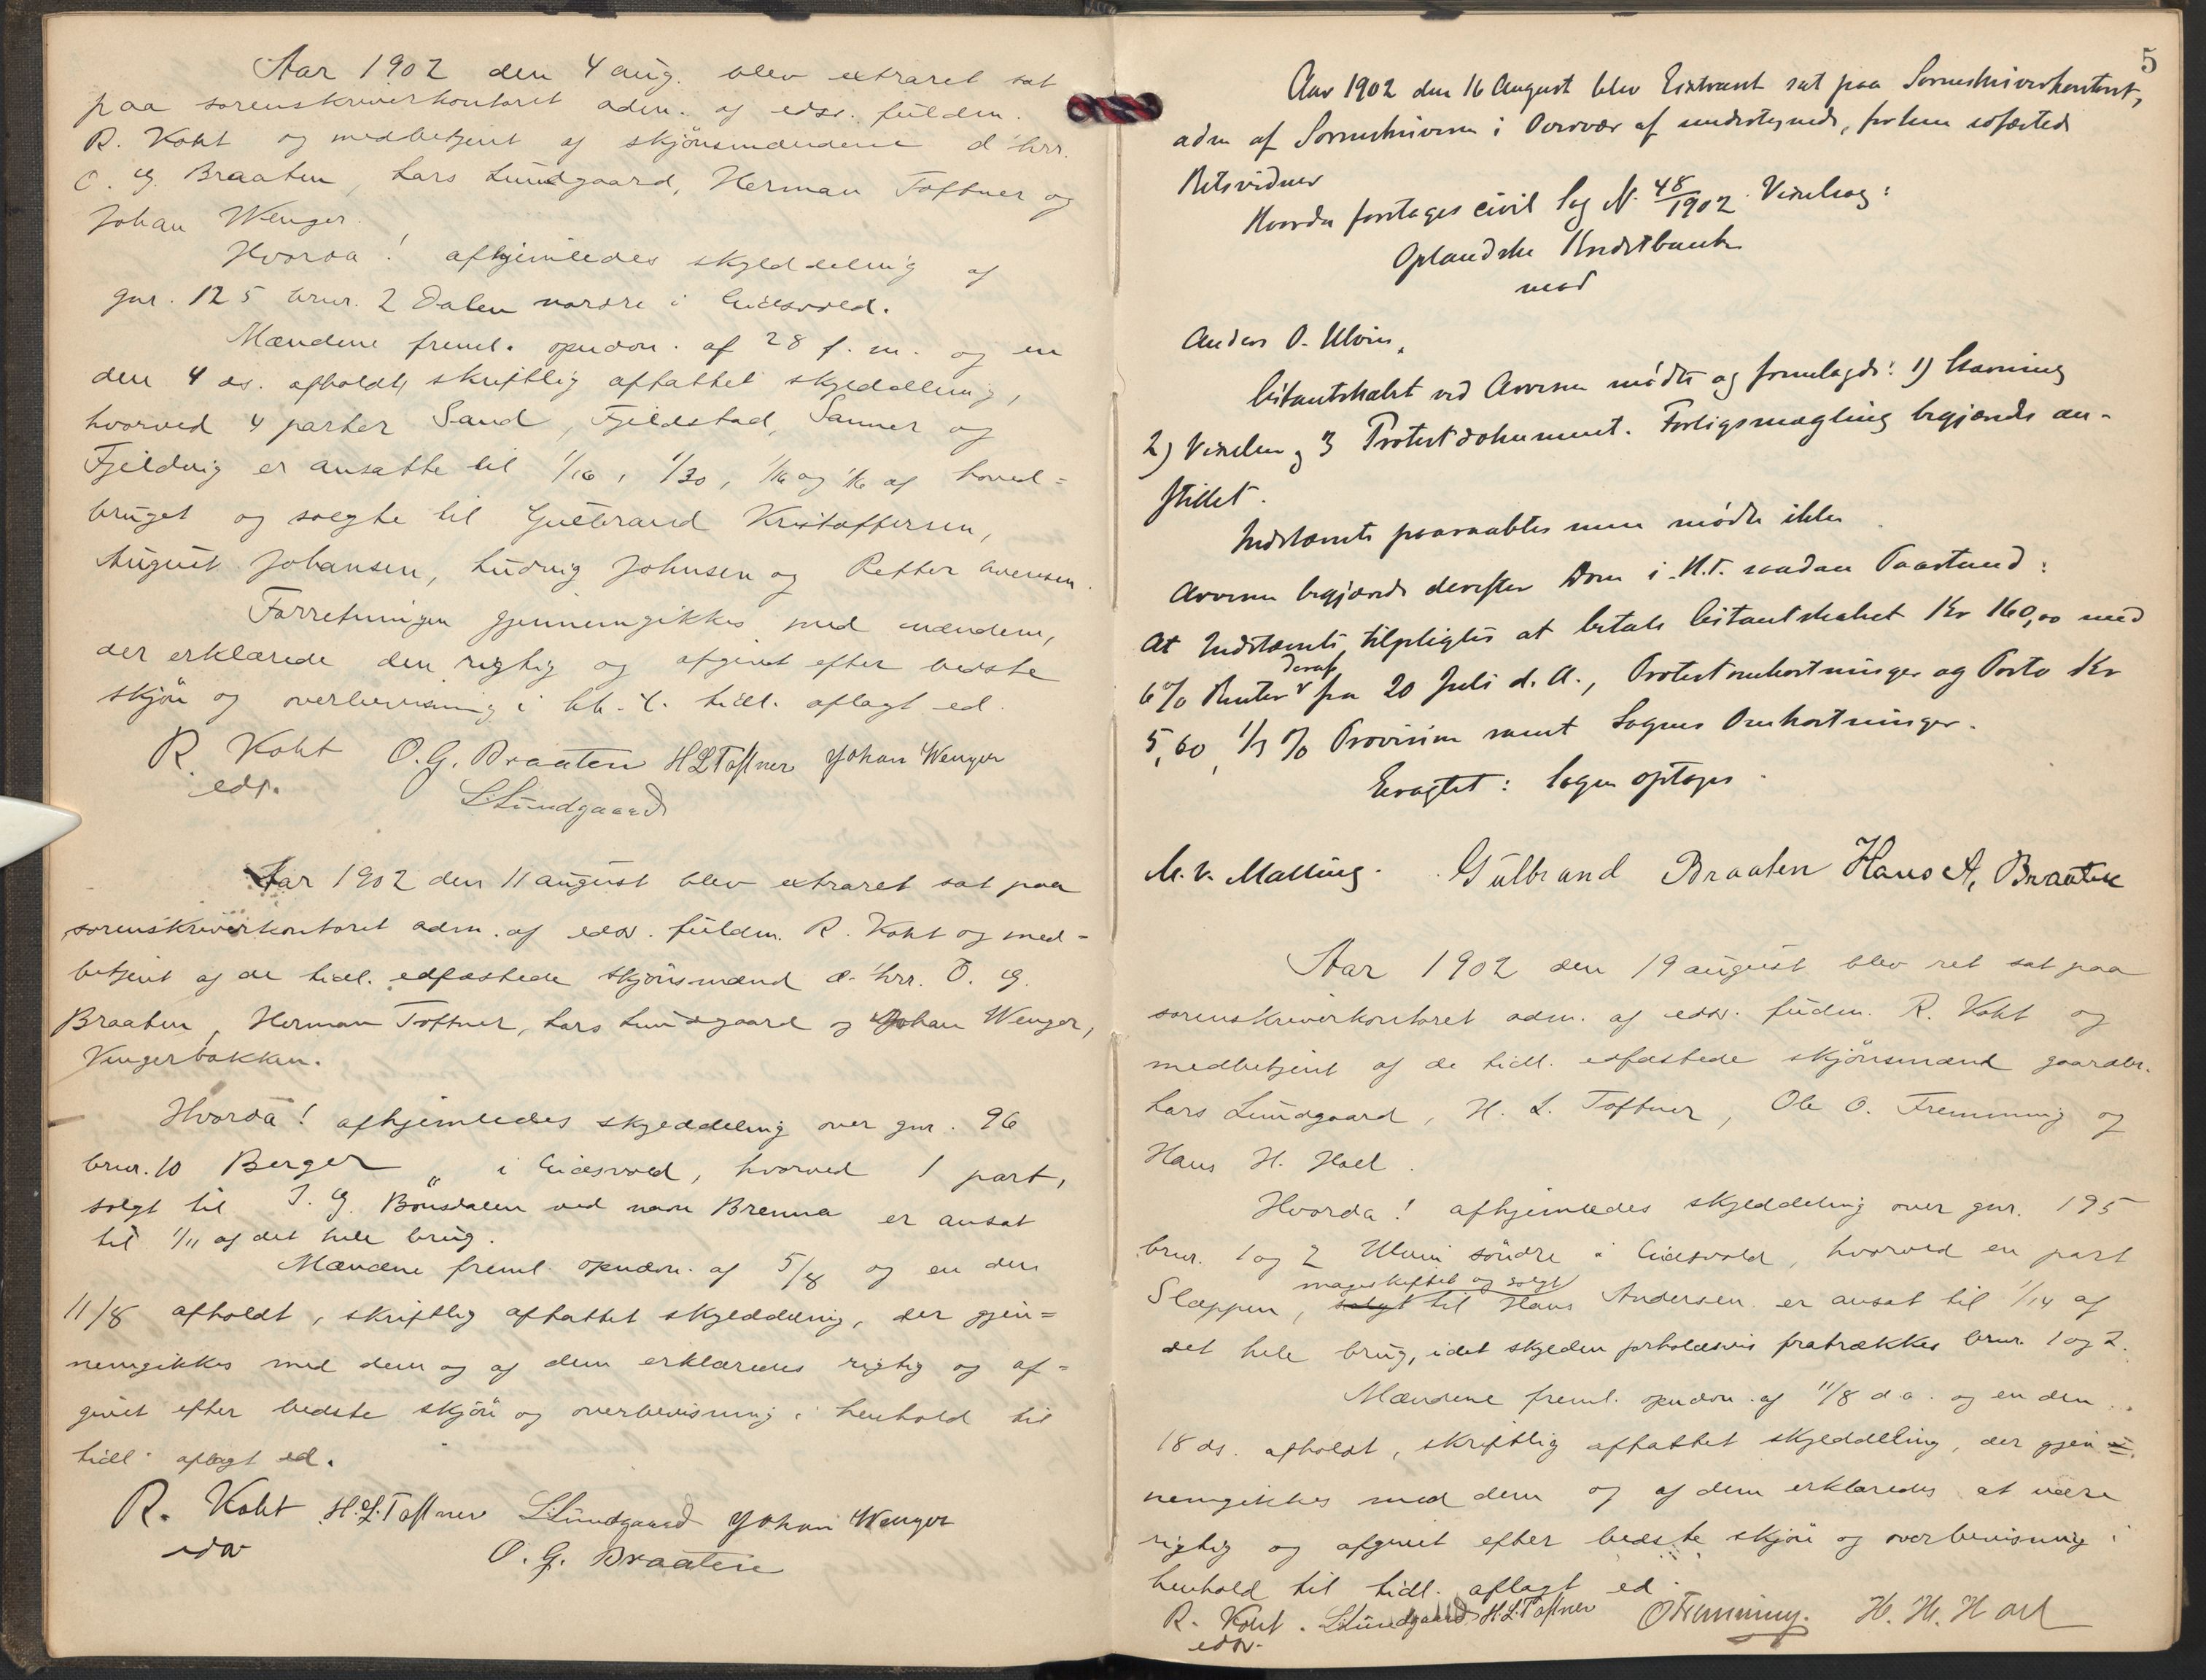 Aar 1902 den 4 aug. blev extraret sat
paa sorenskriverkontoret adm. af edsv. fuldm.
R. Koht og medbetjent af skjönsmændene d'hrr.
O. G. Braaten, Lars Lundgaard, Herman Toftner og
Johan Wenger.
Hvorda! afhjemledes skylddeling af
gnr. 125 brnr. 2 Dalen nordre i Eidsvold.
Mændene freml. opndvn. af 28 f. m. og en
den 4 ds. afholdt, skriftlig affattet skylddeling,
hvorved 4 parter Sand, Fjeldstad, Sanner og
Fjeldvig er ansatte til 1/16, 1/30, 1/16 og 1/16 af hoved=
bruget og solgte til Gulbrand Kristoffersen,
August Johansen, Ludvig Johnsen og Petter Evensen.
Forretningen gjennemgikkes med mændene,
der erklærede den rigtig og afgivet efter bedste
skjön og overbevisning i hh. t. tidl. aflagt ed.
R. Koht O. G. Braaten H L Toftner Johan Wenger
edsv. L. Lundgaard
Aar 1902 den 11 august blev extraret sat paa
sorenskriverkontoret adm. af edsv. fuldm. R. Koht og med-
betjent af de tidl. edfæstede skjönsmænd d. hrr. O. G.
Braaten, Herman Toftner, Lars Lundgaard og Johan Wenger,
Vengerbakken.
Hvorda! afhjemledes skylddeling over gnr. 96
brnr. 10 Berger " i Eidsvold, hvorved 1 part,
solgt til J. G. Bönsdalen ved navn Brenna er ansat
til 1/11 af det hele brug.
Mændene freml. opndvn. af 5/8 og en den
11/8 afholdt, skriftlig affattet skylddeling, der gjen=
nemgikkes med dem og af dem erklæredes rigtig og af=
givet efter bedste skjön og overbevisning i henhold til
tidl. aflagt ed.
R. Koht H. L. Toftner L. Lundgaard Johan Wenger
edsv O. G. Braaten
5
Aar 1902 den 16 August blev Extraret sat paa Sorenskriverkontoret,
adm af Sorenskriveren i Overvær af undertegnede, forhen edfæstede
Retsvidner
Hvorda foretages civil Sag N. 48/1902 Vexelsag:
Oplandske Kreditbank
mod
Anders O. Ulvin,
Citantskabet ved Arvesen mödte og fremlagde: 1) Stævning
2) Vexelen og 3 Protestdokument. Forligsmægling begjæredes an-
stillet.
Indstævnte paaraabtes men mödte ikke.
Arvesen begjærede derefter Dom i H.T. saadan Paastand:
At Indstævnte tilpligtes at betale Citantskabet Kr 160,00 med
6% Renter deraf fra 20 Juli d. A., Protestomkostninger og Porto Kr
5,60, 1/3 % Provision samt Sagens Omkostninger.
Eragtet: Sagen optages.
M. v. Malling. Gulbrand Braaten Hans A. Braaten
Aar 1902 den 19 august blev ret sat paa
sorenskriverkontoret adm. af edsv. fuldm. R. Koht og
medbetjent af de tidl. edfæstede skjönsmænd gaardbr.
Lars Lundgaard, H. L. Toftner, Ole O. Fremming og
Hans H. Hoel.
Hvorda! afhjemledes skylddeling over gnr. 195
brnr. 1 og 2 Ulvin söndre i Eidsvold, hvorved en part
Slæppen, solgt mageskiftet og solgt til Hans Andersen er ansat til 1/14 af
det hele brug, idet skylden forholdsvis fratrækkes brnr. 1 og 2.
Mændene freml. opndvn. af 11/8 d a. og en den
18 ds. afholdt, skriftlig affattet skylddeling, der gjen=
nemgikkes med dem og af dem erklæredes at være
rigtig og afgivet efter bedste skjön og overbevisning i
henhold til tidl. aflagt ed.
R. Koht. L. Lundgaard H. L. Toftner O Fremming. H. H. Hoel
edsv.